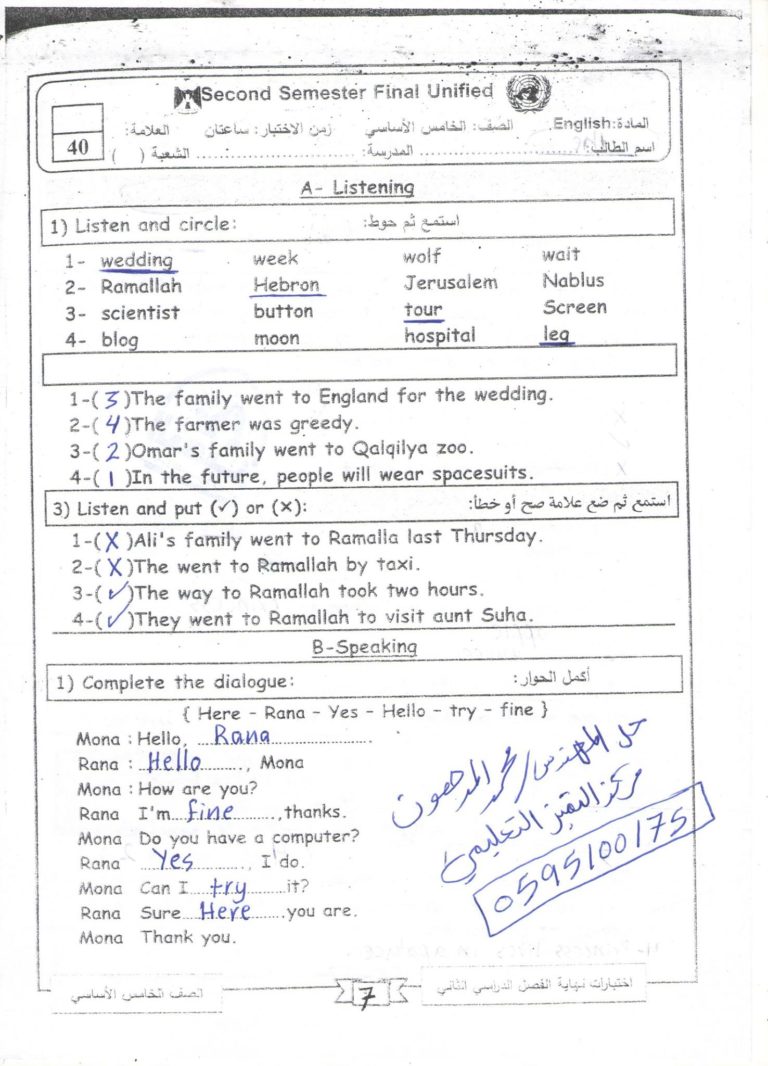 Second Semester Final Unified
المادة:English الصف: الخامس الأساسي زمن الاختبار: ساعتان العلامة:
40
اسم الطالب:.............................. المدرسة: .............................. الشعبة ( )
A- Listening
1) Listen and circle: استمع ثم حوط:
1- wedding week wolf wait
2- Ramallah Hebron Jerusalem Nablus
3- scientist button tour Screen
4- blog moon hospital leg
1-( 3 )The family went to England for the wedding.
2-( 4 )The farmer was greedy.
3-( 2 )Omar's family went to Qalqilya zoo.
4-( 1 )In the future, people will wear spacesuits.
3) Listen and put (✓) or (×): استمع ثم ضع علامة صح أو خطأ:
1-( X )Ali's family went to Ramalla last Thursday.
2-( X )The went to Ramallah by taxi.
3-( ✓ )The way to Ramallah took two hours.
4-( ✓ )They went to Ramallah to visit aunt Suha.
B-Speaking
1) Complete the dialogue: أكمل الحوار:
{ Here – Rana – Yes – Hello – try – fine }
Mona : Hello, ...Rana..............
Rana : ..Hello........, Mona
Mona : How are you?
Rana I'm...fine........,thanks.
Mona Do you have a computer?
Rana ...Yes........, I do.
Mona Can I ....try......it?
Rana Sure...Here......you are.
Mona Thank you.
حل المهندس/ محمد المدهون
مركز التميز التعليمي
0595100175
اختبارات نهاية الفصل الدراسي الثاني
7
الصف الخامس الأساسي